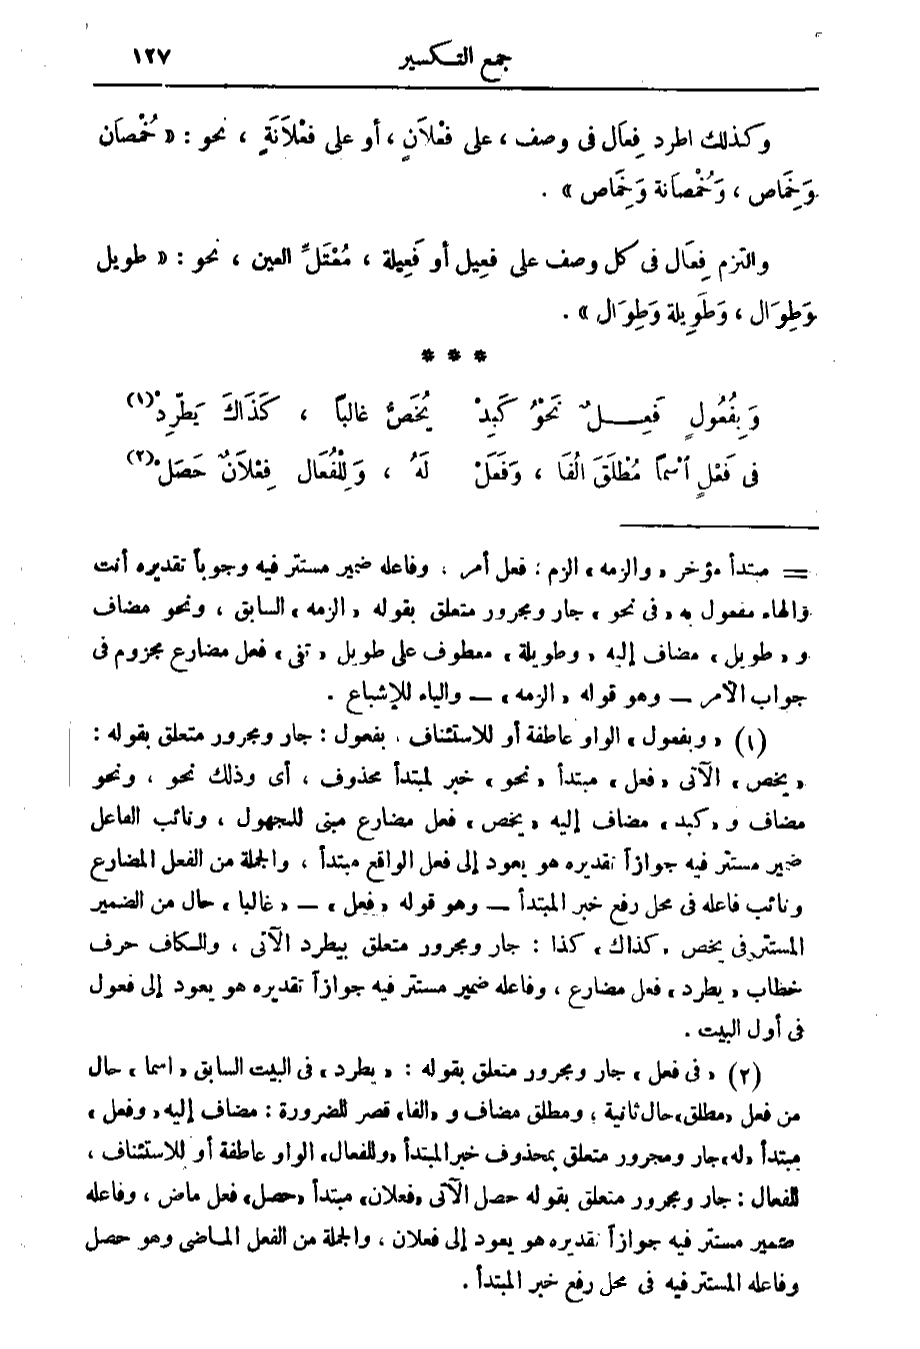 جمع التكسير ١٢٧
وكذلك اطرد فِعَال فى وصف ، على فعْلَانٍ ، أو على فعْلَانَةٍ ، نحو : « خُمْصَان
وَخِمَاص ، وَخُمْصَانة وَخِمَاص » .
والتزم فِعَال فى كل وصف على فعِيل أو فَعِيلة ، مُعْتَلِّ العين ، نحو : « طويل
وَطِوَال ، وَطَوِيلة وَطِوَال » .
* * *
وَبِفُعُولٍ فَعِــلٌ نَحْوُ كَبِدْ يُخَصُّ غالبًا ، كَذَاكَ يَطَّرِدْ (١)
فى فَعْلٍ اسْمًا مُطْلَقَ الْفَا ، وَفَعَلْ لَهُ ، وَلِلْفُعَالِ فِعْلَانٌ حَصَلْ (٢)
= مبتدأ مؤخر « والزمه » الزم : فعل أمر ، وفاعله ضمير مستتر فيه وجوباً تقديره أنت
والهاء مفعول به « فى نحو » جار ومجرور متعلق بقوله « الزمه » السابق ، ونحو مضاف
و « طويل » مضاف إليه « وطويلة » معطوف على طويل « تفى » فعل مضارع مجزوم فى
جواب الأمر — وهو قوله « الزمه » — والياء للإشباع .
(١) « وبفعول » الواو عاطفة أو للاستئناف . بفعول : جار ومجرور متعلق بقوله :
« يخص » الآتى « فعل » مبتدأ « نحو » خبر لمبتدأ محذوف ، أى وذلك نحو ، ونحو
مضاف و « كبد » مضاف إليه « يخص » فعل مضارع مبنى للمجهول ، ونائب الفاعل
ضمير مستتر فيه جوازاً تقديره هو يعود إلى فعل الواقع مبتدأ ، والجملة من الفعل المضارع
ونائب فاعله فى محل رفع خبر المبتدأ — وهو قوله « فعل » — « غالبا » حال من الضمير
المستتر فى يخص « كذاك » كذا : جار ومجرور متعلق بيطرد الآتى ، والكاف حرف
خطاب « يطرد » فعل مضارع ، وفاعله ضمير مستتر فيه جوازاً تقديره هو يعود إلى فعول
فى أول البيت .
(٢) « فى فعل » جار ومجرور متعلق بقوله : « يطرد » فى البيت السابق « اسما » حال
من فعل « مطلق » حال ثانية ، ومطلق مضاف و « الفا » قصر للضرورة : مضاف إليه « وفعل »
مبتدأ « له » جار ومجرور متعلق بمحذوف خبر المبتدأ « وللفعال » الواو عاطفة أو للاستئناف ،
للفعال : جار ومجرور متعلق بقوله حصل الآتى « فعلان » مبتدأ « حصل » فعل ماض ، وفاعله
ضمير مستتر فيه جوازاً تقديره هو يعود إلى فعلان ، والجملة من الفعل الماضى وهو حصل
وفاعله المستتر فيه فى محل رفع خبر المبتدأ .